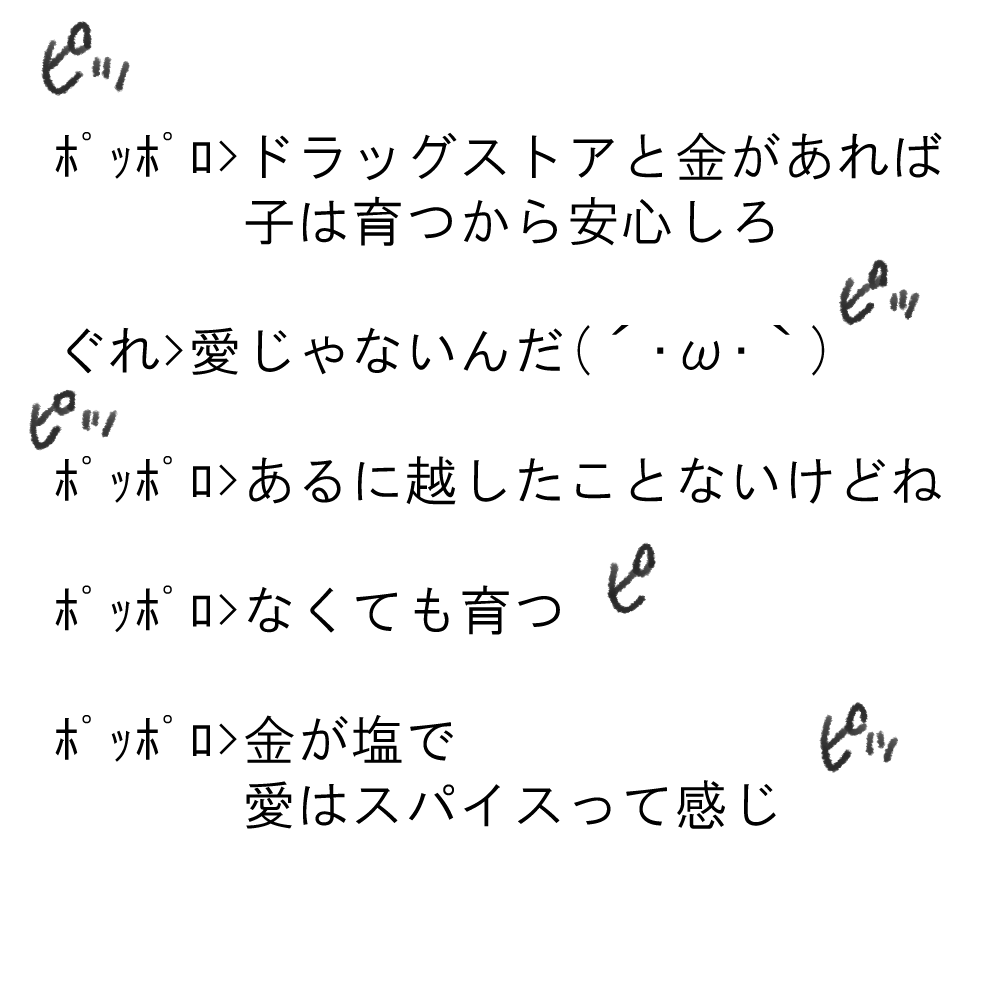 ピッ
ﾎﾟｯﾎﾟﾛ>ドラッグストアと金があれば
子は育つから安心しろ
ピッ
ぐれ>愛じゃないんだ(´･ω･｀)
ピッ
ﾎﾟｯﾎﾟﾛ>あるに越したことないけどね
ピ
ﾎﾟｯﾎﾟﾛ>なくても育つ
ピッ
ﾎﾟｯﾎﾟﾛ>金が塩で
愛はスパイスって感じ